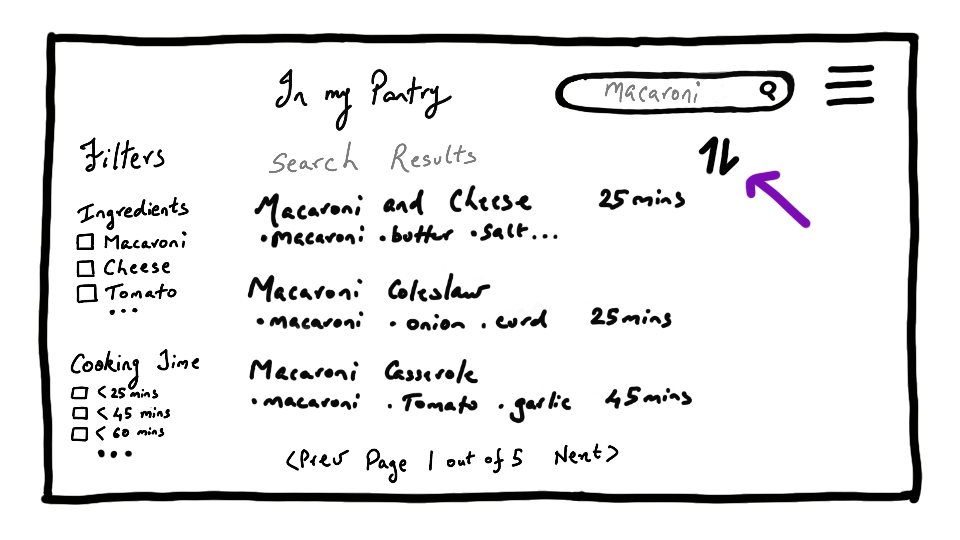 In my Pantry
Macaroni
Filters
Search Results
Ingredients
Macaroni
Cheese
Tomato
...
Cooking Time
< 25 mins
< 45 mins
< 60 mins
...
Macaroni and Cheese 25 mins
•macaroni •butter •salt...
Macaroni Coleslaw
•macaroni •onion •curd 25 mins
Macaroni Casserole
•macaroni •Tomato •garlic 45 mins
<Prev Page 1 out of 5 Next>